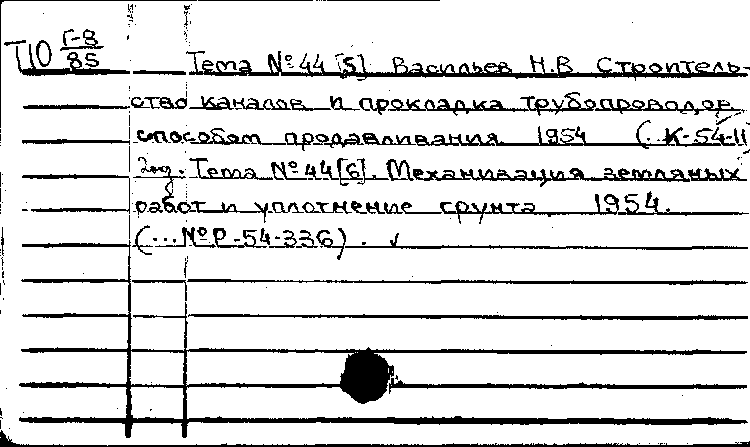 Т10 Г-8/85
Тема № 44 [5] Васильев Н.В Строитель-
ство каналов и прокладка трубопроводов
способом продавливания 1954 (.. К-54-11)
Тема № 44 [6]. Механизация земляных
работ и уплотнение грунта. 1954.
(...№Р-54-336). ✓